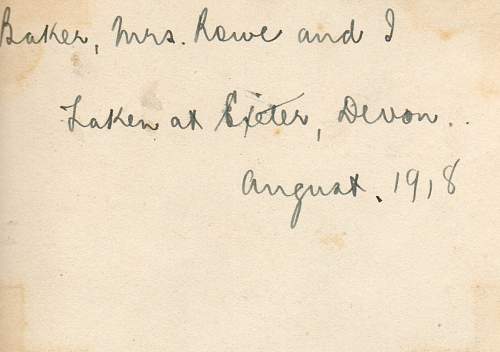 Baker, Mrs. Rowe and I
Taken at Exeter, Devon..
August. 1918